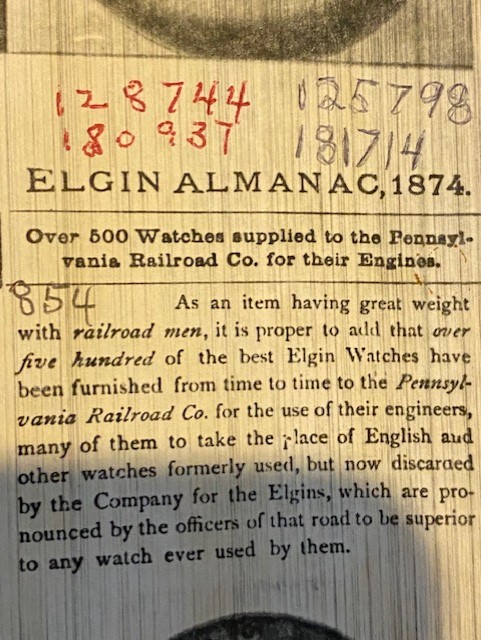 128744 125798
180937 181714
ELGIN ALMANAC, 1874.
Over 500 Watches supplied to the Pennsyl-
vania Railroad Co. for their Engines.
854 As an item having great weight
with railroad men, it is proper to add that over
five hundred of the best Elgin Watches have
been furnished from time to time to the Pennsyl-
vania Railroad Co. for the use of their engineers,
many of them to take the place of English and
other watches formerly used, but now discarded
by the Company for the Elgins, which are pro-
nounced by the officers of that road to be superior
to any watch ever used by them.